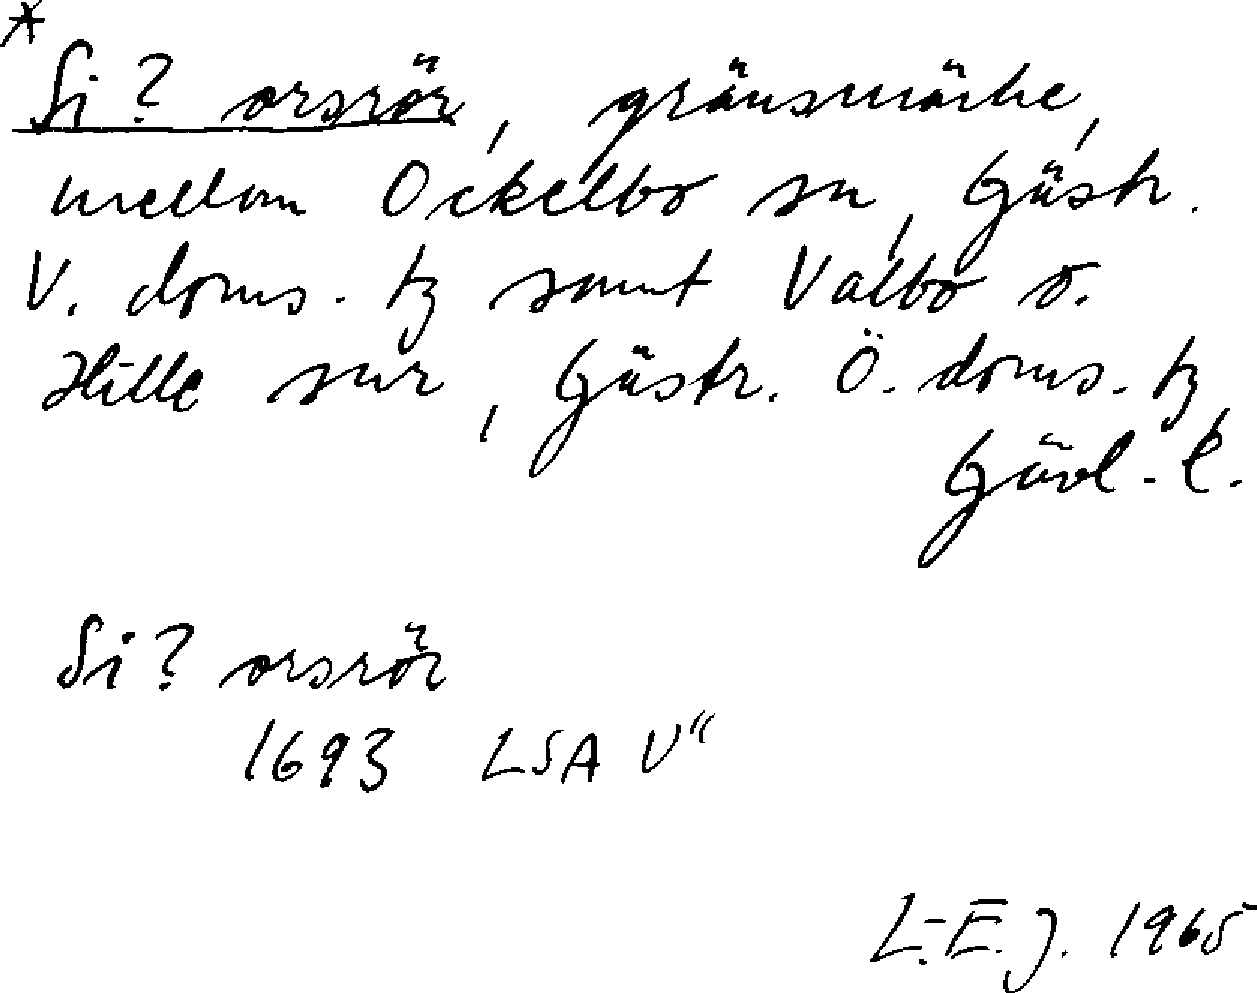 *
Si? orsrör, gränsmärke,
mellan Ockelbo sn, Gästr.
V. doms. tg samt Valbo o.
Hille snr, Gästr. Ö. doms. tg,
Gävl. l.
Si? orsrör
1693 LSA V"
L.-E. J. 1965